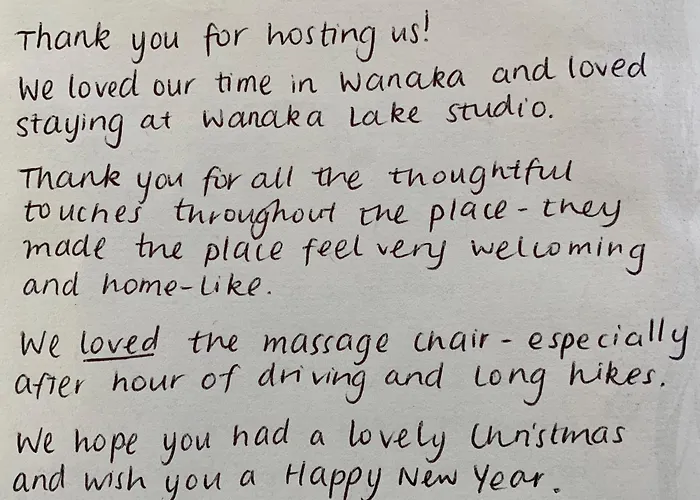 Thank you for hosting us!
We loved our time in Wanaka and loved
staying at Wanaka Lake Studio.
Thank you for all the thoughtful
touches throughout the place - they
made the place feel very welcoming
and home-like.
We loved the massage chair - especially
after hour of driving and long hikes.
We hope you had a lovely Christmas
and wish you a Happy New Year.